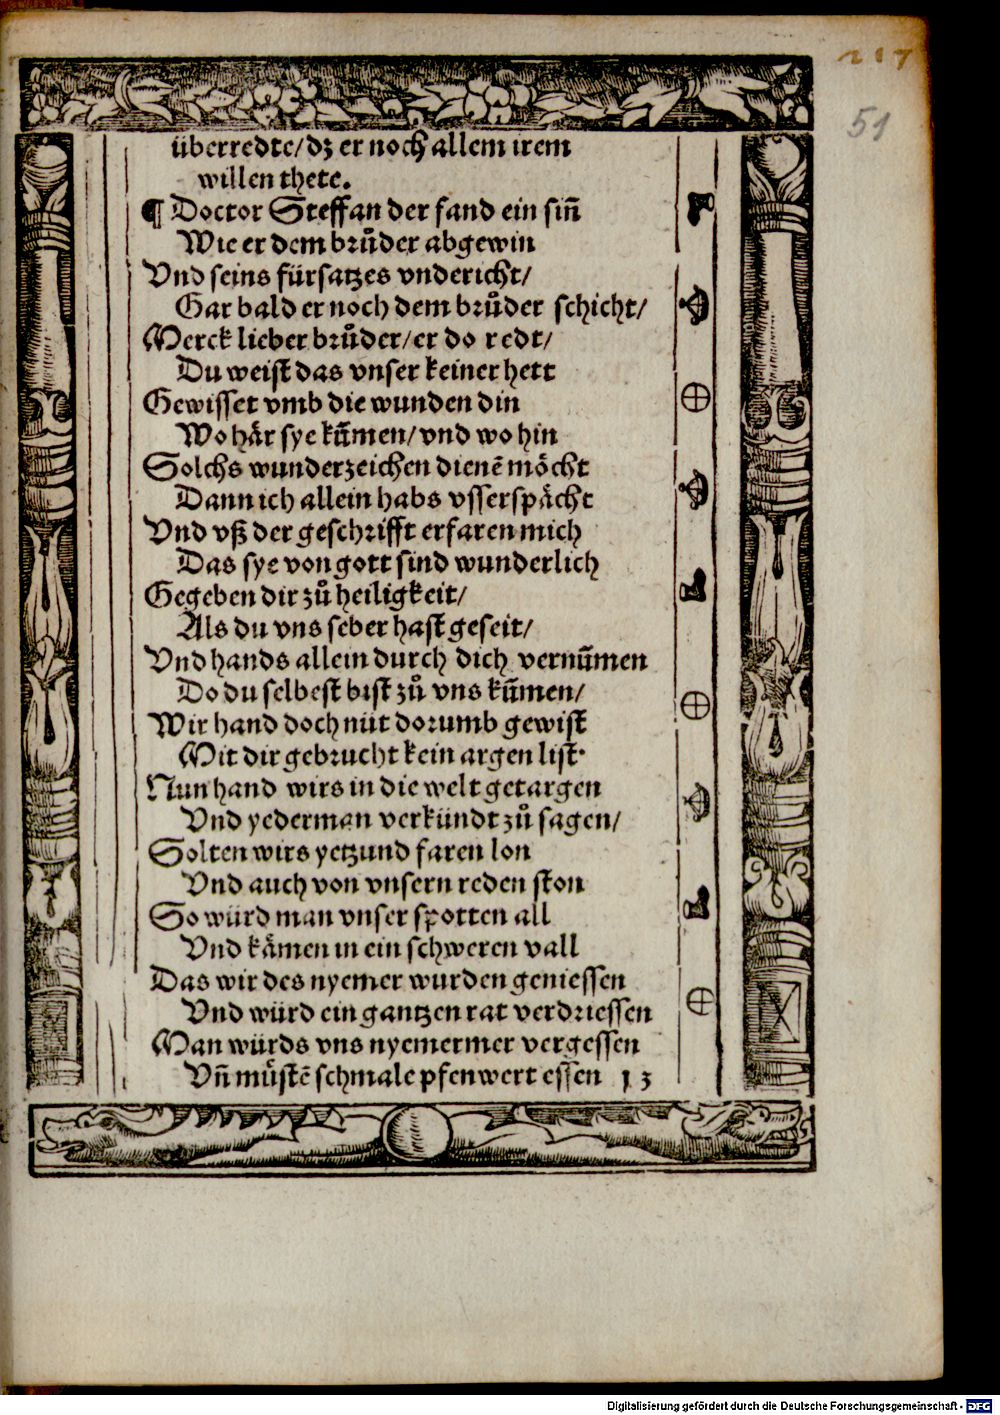 217
51
überredte/dz er noch allem irem
willen thete.
¶ Doctor Steffan der fand ein siñ
Wie er dem brůder abgewin
Vnd seins fürsatzes vndericht/
Gar bald er noch dem brůder schicht/
Merck lieber brůder/er do redt/
Du weist das vnser keiner hett
Gewisset vmb die wunden din
Wo här sye kūmen/vnd wo hin
Solchs wunderzeichen dienē möcht
Dann ich allein habs vsserspächt
Vnd vß der geschrifft erfaren mich
Das sye von gott sind wunderlich
Gegeben dir zů heiligkeit/
Als du vns seber hast geseit/
Vnd hands allein durch dich vernūmen
Do du selbest bist zů vns kūmen/
Wir hand doch nüt dorumb gewist
Mit dir gebrucht kein argen list·
Nun hand wirs in die welt getargen
Vnd yederman verkündt zů sagen/
Solten wirs yetzund faren lon
Vnd auch von vnsern reden ston
So würd man vnser spotten all
Vnd kämen in ein schweren vall
Das wir des nyemer wurden geniessen
Vnd würd ein gantzen rat verdriessen
Man würds vns nyemermer vergessen
Vñ můstē schmale pfenwert essen 13
Digitalisierung gefördert durch die Deutsche Forschungsgemeinschaft - DFG